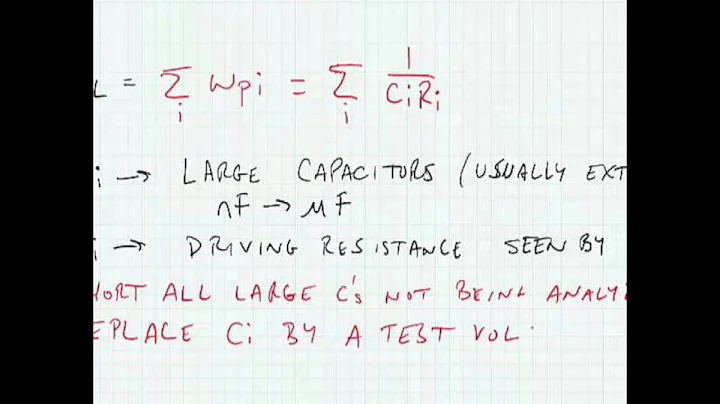 L = Σ i Wpi = Σ i 1/CiRi
i → LARGE CAPACITORS (USUALLY EXT
nF → μF
i → DRIVING RESISTANCE SEEN BY
HORT ALL LARGE C's NOT BEING ANALY
EPLACE Ci BY A TEST VOL